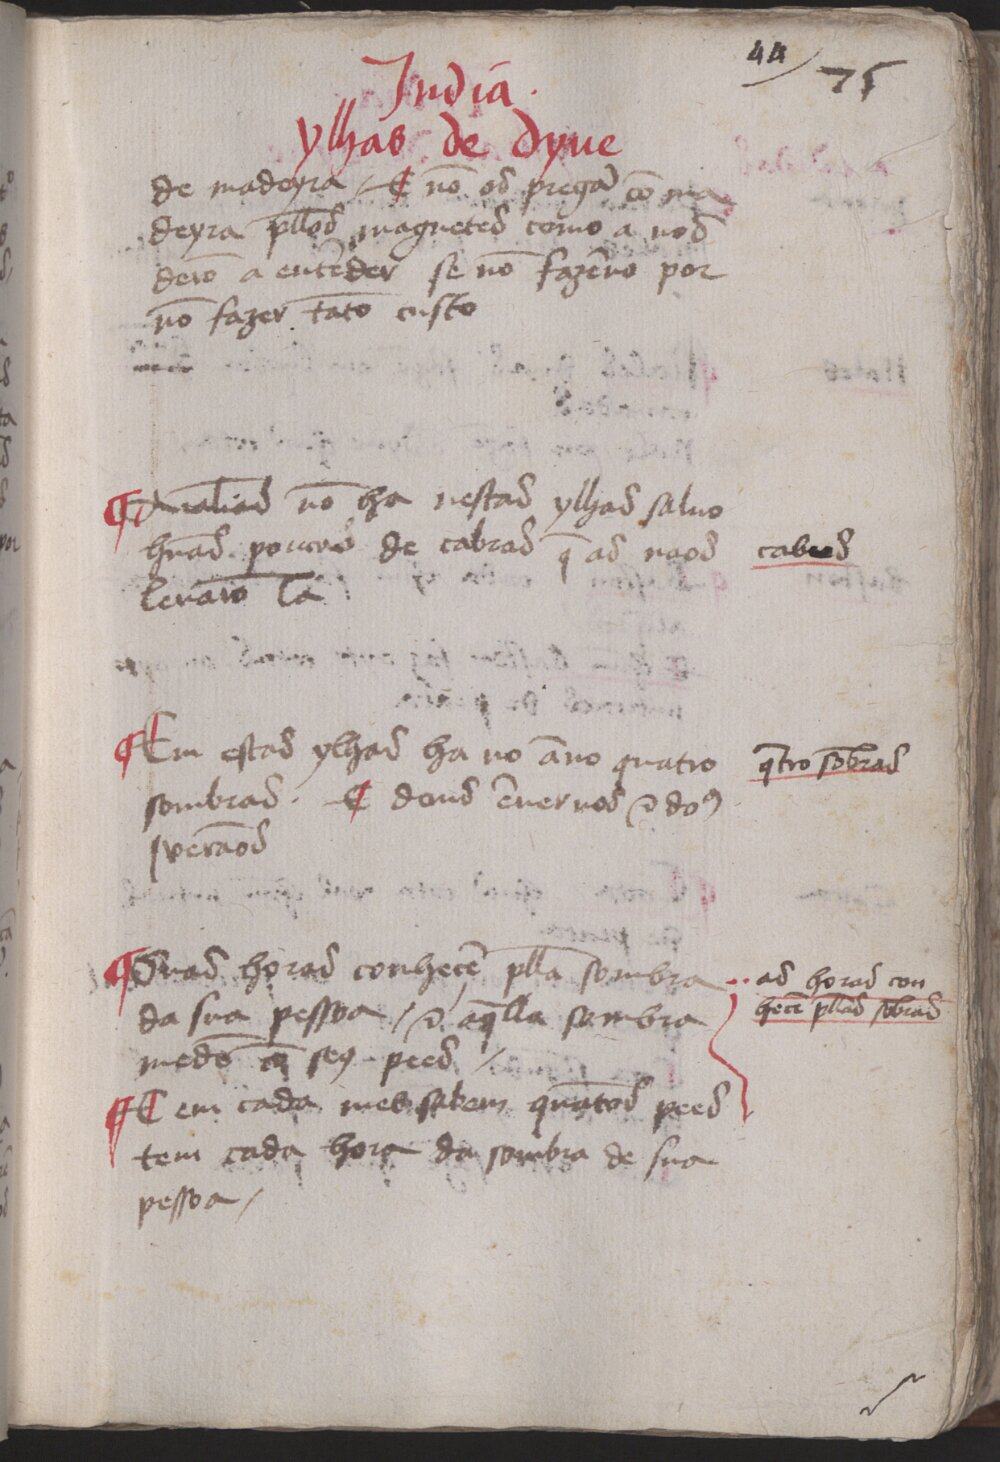 44 / 75
Jndia.
ylhas de dyue
de madeyra / E nõ os pregã cõ ma
deyra pllos magnetes como a nos
derõ a entẽder se nõ fazẽno por
nõ fazer tãto custo
¶ nõ ha nestas ylhas saluo
hũas poucas de cabras q̃ as naos
leuarõ la
cabras
¶ Em estas ylhas ha no ãno quatro
sombras. E dous ẽuernos ⁊ doꝯ
veraõs
q̃tro sõbras
¶ Suas horas conhecẽ plla sombra
da sua pessoa / ⁊ aq̃lla sombra
medẽ cõ seꝯ pees /
as horas con
hecẽ pllas sõbras
¶ E em cada mes sabem quãtos pees
tem cada hora da sombra de sua
pessoa /